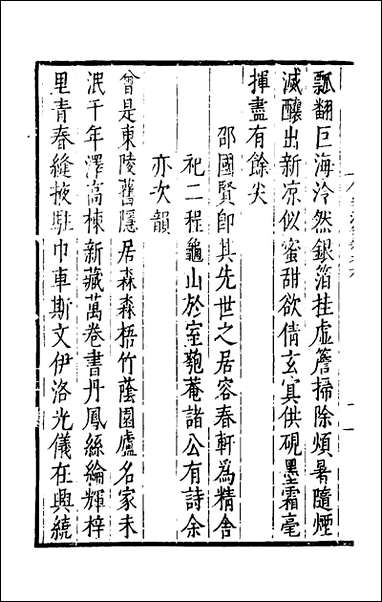 瓢翻巨海泠然銀箔挂虚簷掃除煩暑隨煙
滅釀出新凉似蜜甜欲倩玄㝠供硯墨霜毫
揮盡有餘尖
邵國賢即其先世之居容春軒為精舎
祀二程龜山於室匏菴諸公有詩余
亦次韻
曾是東陵舊隱居森森梧竹蔭園廬名家未
泯千年澤高棟新藏萬卷書丹鳳絲綸輝梓
里青春縫掖駐巾車斯文伊洛光儀在興繞